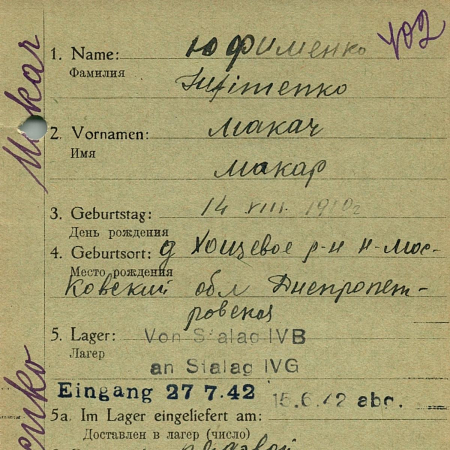 402
1. Name: Юфименко
Фамилия
Jufimenko
2. Vornamen: Макар
Имя
Макар
3. Geburtstag: 14 VIII.
День рождения
4. Geburtsort: д Хощевое р-н Н-Мос-
Место рождения
ковский обл Днепропет-
ровская
5. Lager: Von Stalag IVB
Лагер
an Stalag IVG
Eingang 27 7.42 15.6.42 abg.
5a. Im Lager eingeliefert am:
Доставлен в лагер (число)
Макар